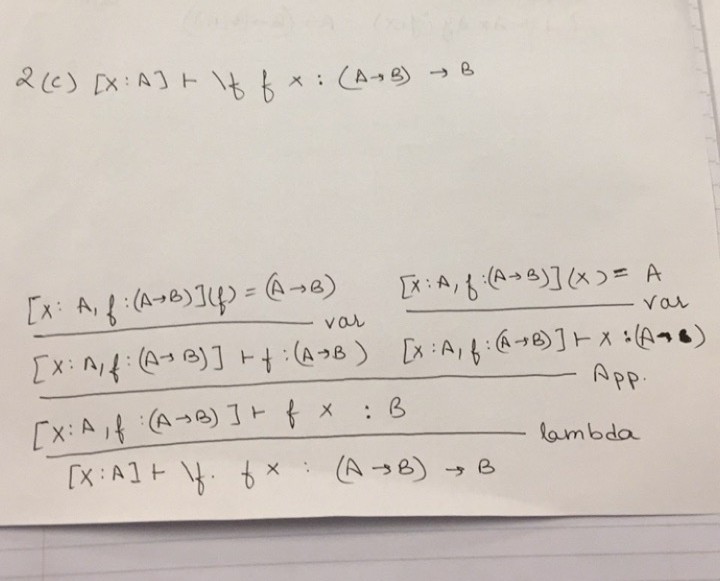 2(c) [x:A] ⊢ \f f x : (A→B) → B
[x: A, f:(A→B)](f) = (A→B) [x:A, f:(A→B)](x) = A
var var
[x: A, f:(A→B)] ⊢ f:(A→B) [x:A, f:(A→B)] ⊢ x:(A→B)
App.
[x:A, f:(A→B)] ⊢ f x : B
lambda
[x:A] ⊢ \f. f x : (A→B) → B